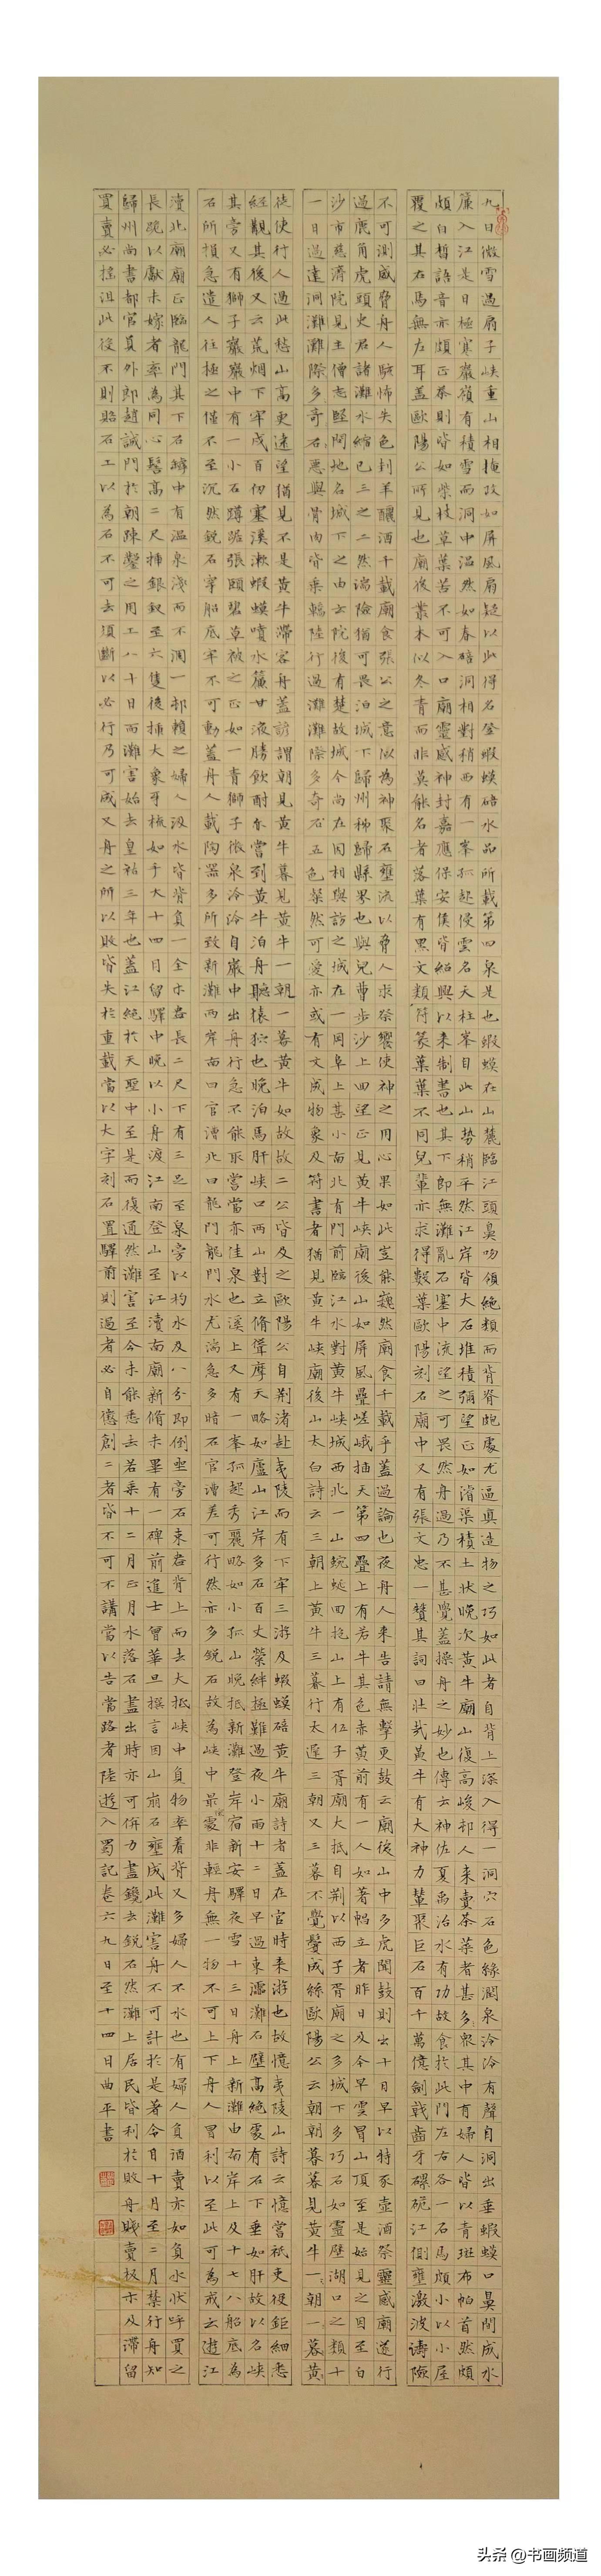 九日微雪過扇子峽重山相掩政如屏風扇疑以此得名登蝦蟆碚水品所載第四泉是也蝦蟆在山麓臨江頭鼻吻頷絕類而背脊皰處尤逼真造物之巧如此者自背上深入得一洞穴石色綠潤泉泠泠有聲自洞出垂蝦蟆口鼻間成水
簾入江是日極寒巖嶺有積雪而洞中溫然如春碚洞相對稍西有一峯孤起侵雲名天柱峯自此山勢稍平然江岸皆大石堆積彌望正如濬渠積土狀晚次黃牛廟山復高峻邨人來賣茶菜者甚多眾其中有婦人皆以青斑布帕首然頗
頗白皙語音亦頗正茶則皆如柴枝草葉苦不可入口廟靈感神封嘉應保安侯皆紹興以來制書也其下即無灘亂石塞中流望之可畏然舟過乃不甚覺蓋操舟之妙也傳云神佐夏禹治水有功故食於此門左右各一石馬頗小以小屋
覆之其右馬無左耳蓋歐陽公所見也廟後叢木似冬青而非莫能名者落葉有黑文類符篆葉葉不同兒輩亦求得數葉歐陽刻石廟中又有張文忠一贊其詞曰壯哉黃牛有大神力輦聚巨石百千萬億劍戟齒牙磥硊江側壅激波濤險
不可測威脅舟人駭怖失色刲羊釃酒千載廟食張公之意似為神聚石壅流以脅人求祭饗使神之用心果如此豈能巍然廟食千載乎蓋過論也夜舟人來告請無擊更鼓云廟後山中多虎聞鼓則出十日早以特豕壺酒祭靈感廟遂行
過鹿角虎頭史君諸灘水縮已三之二然湍險猶可畏泊城下歸州秭歸縣界也與兒曹步沙上回望正見黃牛峽廟後山如屏風疊嵯峨插天第四疊上有若牛其色赤黃前有一人如著帽立者昨日及今早雲冒山頂至是始見之因至白
沙市慈濟院見主僧志堅問地名城下之由士院後有楚故城今尚在因相與訪之城在一岡阜上甚小南北有門前臨江水對黃牛峽城西北一山蜿蜒回抱山上有伍子胥廟大抵自荊以西子胥廟之多城下多巧石如靈壁湖口之類十
一日過達洞灘灘際多奇石惡與骨肉皆乘轎陸行過灘灘際多奇石五色粲然可愛亦或有文成物象及符書者猶見黃牛峽廟後山太白詩云三朝上黃牛三暮行太遲三朝又三暮不覺鬢成絲歐陽公云朝朝暮暮見黃牛一朝一暮黃
徒使行人過此愁山高更遠望猶見不是黃牛滯客舟蓋諺謂朝見黃牛暮見黃牛一朝一暮黃牛如故故二公皆及之歐陽公自荊渚赴夷陵而有下牢三游及蝦蟆碚黃牛廟詩者蓋在官時來游也故憶夷陵山詩云憶嘗祇吏役鉅細悉
經覯其後又云荒烟下牢戍百仞塞溪漱蝦蟆噴水簾甘液勝飲酎亦嘗到黃牛泊舟聽猿狖也晚泊馬肝峽口兩山對立脩聳摩天略如廬山江岸多石百丈縈絆極難過夜小雨十二日早過東濡灘石壁高絕處有石下垂如肝故以名峽
其旁又有獅子巖巖中有一小石蹲踞張頤碧草被之正如一青獅子微泉泠泠自巖中出舟行急不能取嘗當亦佳泉也溪上又有一峯孤起秀麗略如小孤山晚抵新灘登岸宿新安驛夜雪十三日舟上新灘由南岸上及十七八船底為
石所損急遣人往極之僅不至沉然銳石穿船底牢不可動蓋舟人載陶器多所致新灘兩岸南曰官漕北曰龍門龍門水尤湍急多暗石官漕差可行然亦多銳石故為峽中最險處非輕舟無一物不可上下舟人冒利以至此可為戒云遊江
瀆北廟廟正臨龍門其下石罅中有溫泉淺而不涸一邨賴之婦人汲水皆背負一全木盎長二尺下有三足至泉旁以杓水及八分即倒坐旁石束盎背上而去大抵峽中負物率着背又多婦人不水也有婦人負酒賣亦如負水狀呼買之
長跪以獻未嫁者率為同心髻高二尺插銀釵至六隻後插大象牙梳如手大十四日留驛中晚以小舟渡江南登山至江瀆南廟新脩未畢有一碑前進士曾華旦撰言因山崩石壅成此灘害舟不可計於是著令自十月至二月禁行舟知
歸州尚書都官員外郎趙誠聞於朝疎鑿之用工八十日而灘害始去皇祐三年也蓋江絕於天聖中至是而復通然灘害至今未能悉去若乘十二月正月水落石盡出時亦可併力盡鑱去銳石然灘上居民皆利於敗舟賤賣板木及滯留
買賣必搖沮此役不則賂石工以為石不可去須斷以必行乃可成又舟之所以敗皆失於重載當以大字刻石置驛前則過者必自懲創二者皆不可不講當以告當路者陸遊入蜀記卷六九日至十四日曲平書
头条 @书画频道